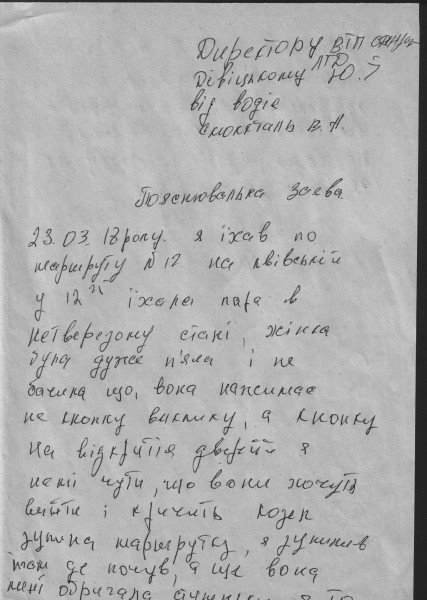 Директору ВТП
Дівіцькому Ю. Й
від водія
Смокталь В. А.
Пояснювалька заєва
23.03.18 року. я їхав по
маршруту №12 на львівській
у 12 їхала пара в
нетверезому стані, жінка
була дуже п'яла і не
бачила що, вона нажимає
не кнопку виклику, а кнопку
на відкриття дверей я
не чути, що вони хочуть
вийти і кричить козел
зупина маршрутку, я зупинив
там де почув, а ще вона
мені